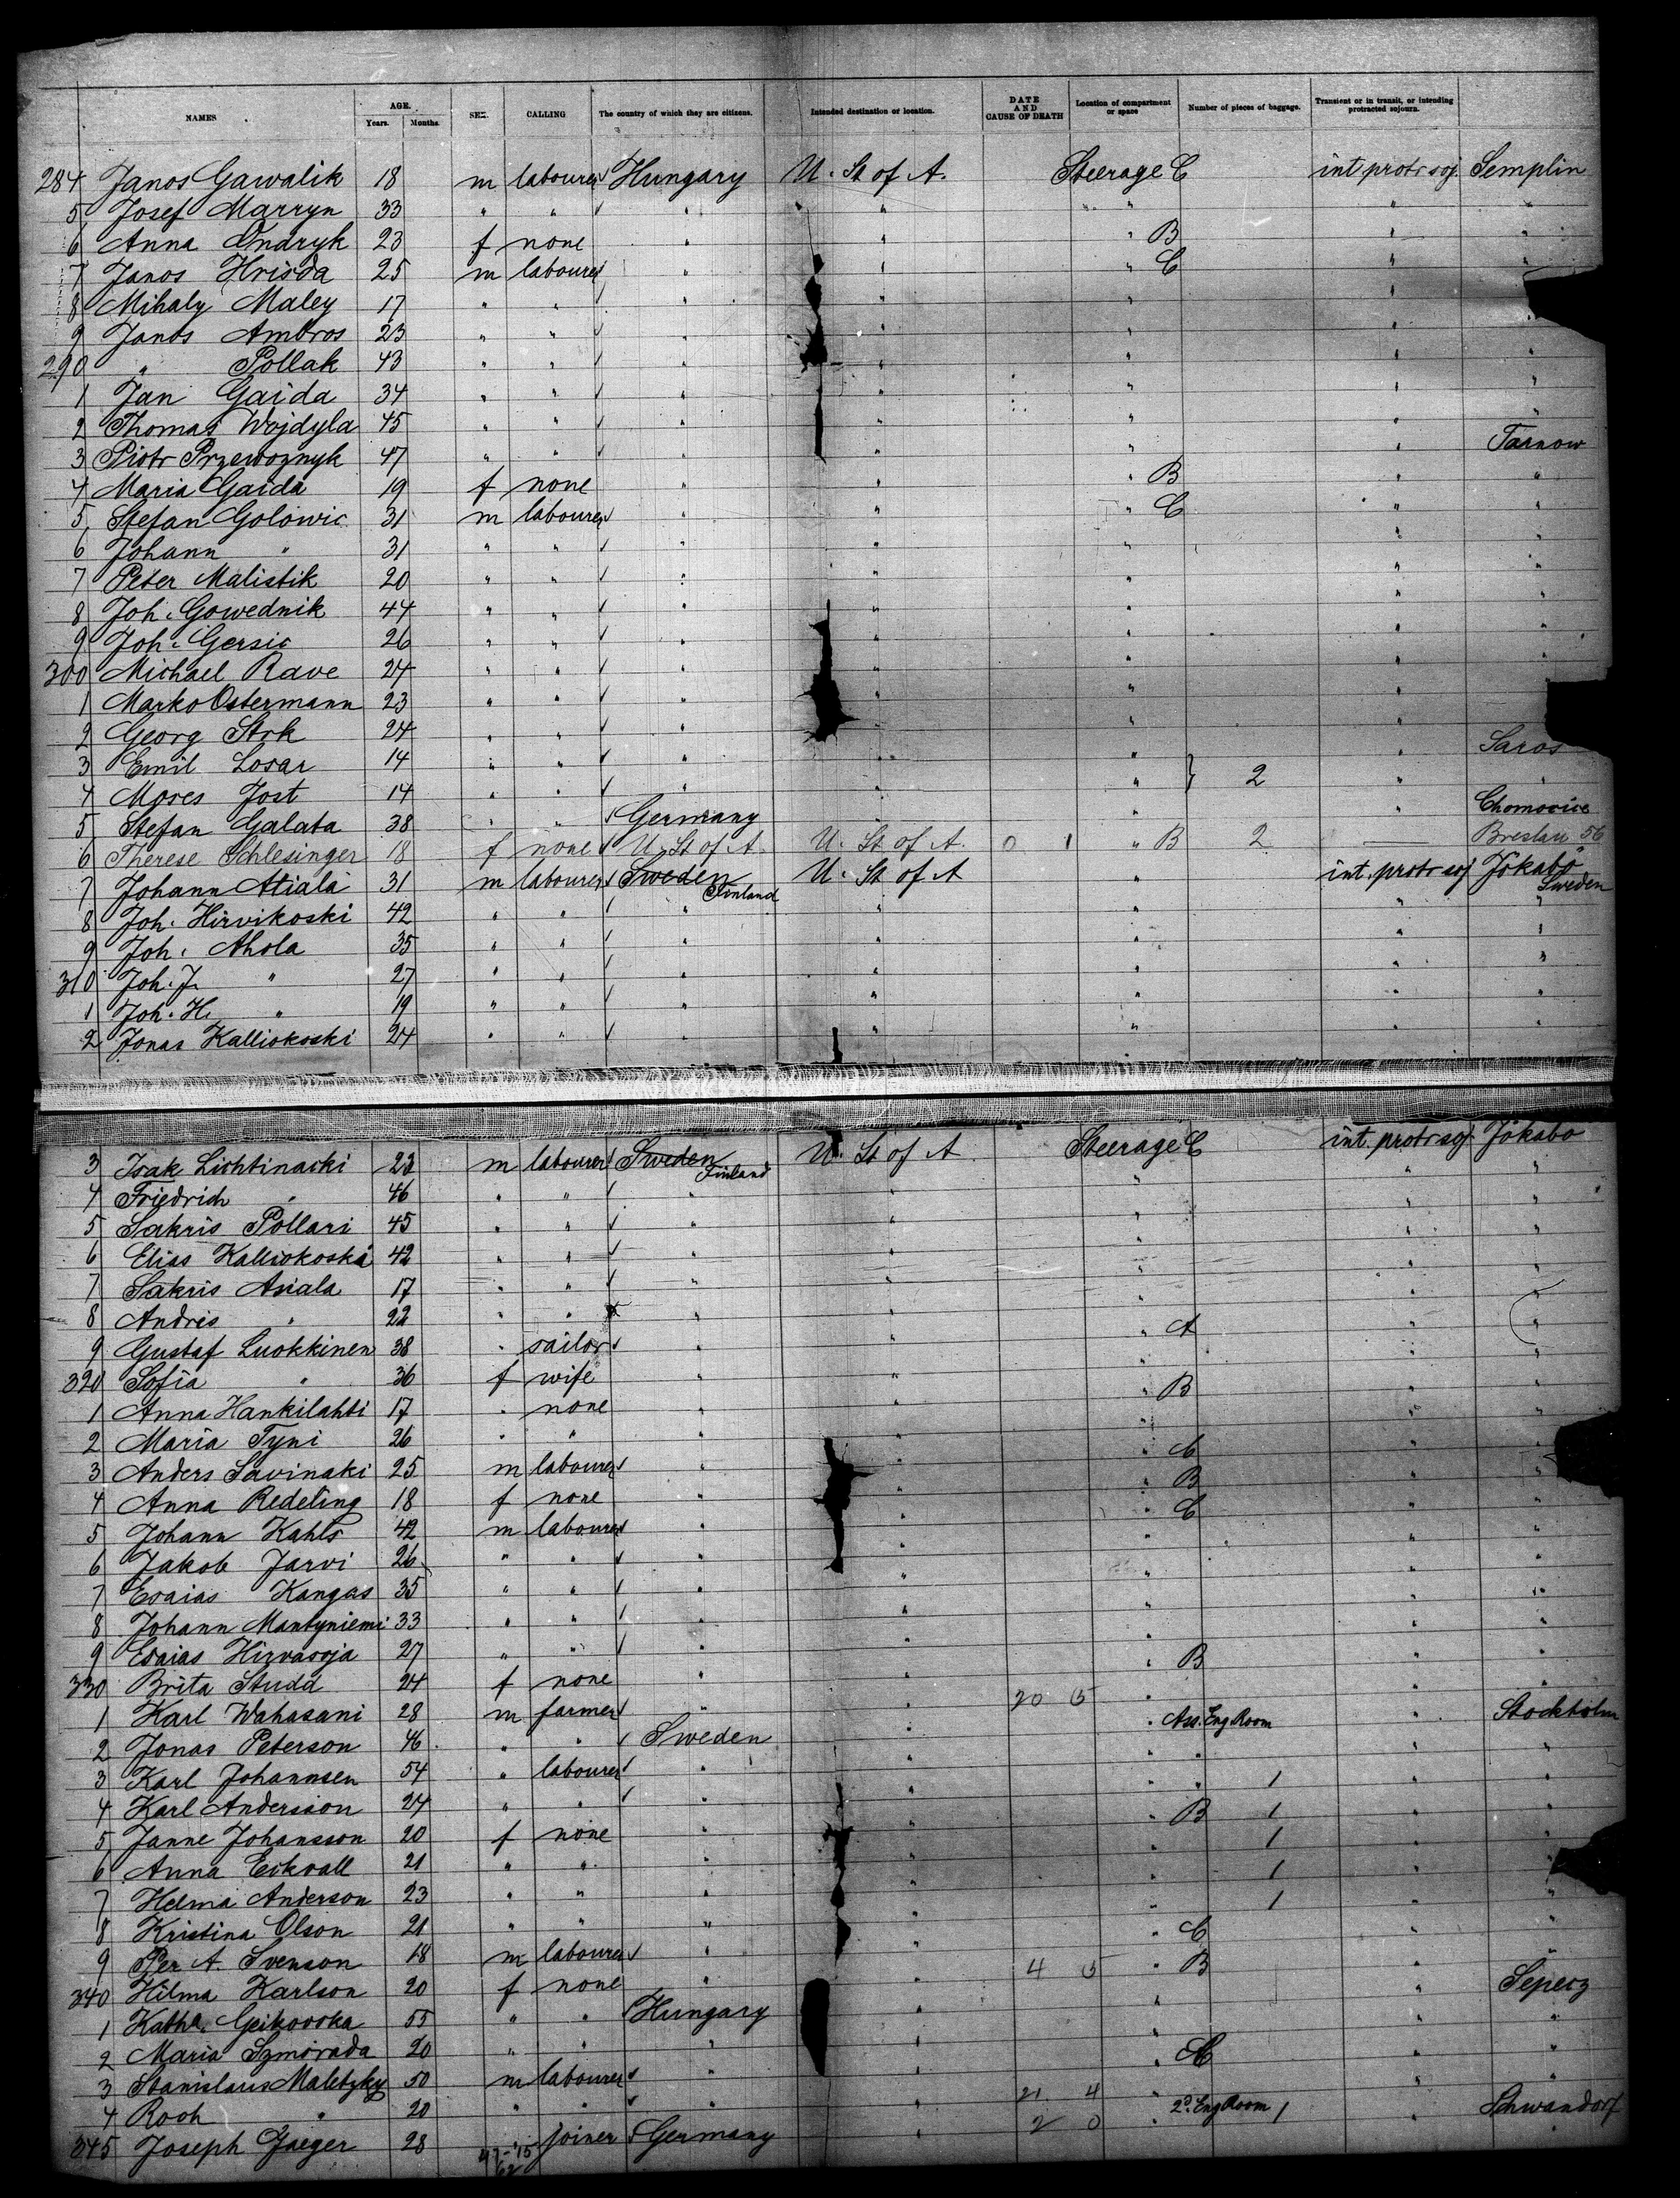 NAMES AGE. Years. Months. SEX. CALLING The country of which they are citizens. Intended destination or location. DATE AND CAUSE OF DEATH Location of compartment or space Number of pieces of baggage. Transient or in transit, or intending protracted sojourn.
284 Janos Gawalik 18 m labourer Hungary U. St of A. Steerage C int protr soj. Semplin
5 Josef Marryn 33 " " " " " " "
6 Anna Ondryk 23 f none " " " B " "
7 Janos Hrisda 25 m labourer " " " C " "
8 Mihaly Maley 17 " " " " " "
9 Janos Ambros 23 " " " " " " "
290 " Pollak 43 " " " " " " "
1 Jan Gaida 34 " " " " " " "
2 Thomas Wojdyla 45 " " " " " " "
3 Piotr Przewoznyk 47 " " " " " " Tarnow
4 Maria Gaida 19 f none " " " B " "
5 Stefan Golowic 31 m labourer " " " C " "
6 Johann " 31 " " " " " " "
7 Peter Malistik 20 " " " " " " "
8 Joh. Gowednik 44 " " " " " " "
9 Joh. Gersic 26 " " " " " " "
300 Michael Rave 24 " " " " " " "
1 Marko Ostermann 23 " " " " " "
2 Georg Strk 24 " " " " " "
3 Emil Losar 14 " " " " " " Saros
4 Moses Jost 14 " " " " " 2 " "
5 Stefan Galata 38 " " Germany " " " Chomovice
6 Therese Schlesinger 18 f none U. St of A. U. St of A. 0 1 " B 2 — Breslau 56
7 Johann Atiala 31 m labourer Sweden Finland U. St of A " int. protr soj Jokabo Sweden
8 Joh. Hirvikoski 42 " " " " " " "
9 Joh. Ahola 35 " " " " " " "
310 Joh. J. " 27 " " " " " " "
1 Joh. H. " 19 " " " " " " "
2 Jonas Kalliokoski 24 " " " " " " "
3 Isak Lichtinacki 23 m labourer Sweden Finland U. St of A Steerage C int. protr soj. Jokabo
4 Friedrich " 46 " " " " " " "
5 Sakris Pollari 45 " " " " " " "
6 Elias Kalliokoski 42 " " " " " " "
7 Sakris Asiala 17 " " " " " " "
8 Andris " 22 " " " " " " "
9 Gustaf Luokkinen 38 " sailor " " " A " "
320 Sofia " 36 f wife " " " " "
1 Anna Hankilahti 17 " none " " " B " "
2 Maria Tyni 26 " " " " " " "
3 Anders Savinaki 25 m labourer " " " C " "
4 Anna Redeling 18 f none " " " B " "
5 Johann Kahls 42 m labourer " " " C " "
6 Jakob Jarvi 26 " " " " " " "
7 Esaias Kangas 35 " " " " " " "
8 Johann Mantyniemi 33 " " " " " " "
9 Esaias Hirvasoja 27 " " " " " " "
330 Brita Studd 24 f none " " " B " "
1 Karl Wahasani 28 m farmer " " 20 " " "
2 Jonas Peterson 46 " " Sweden " " Ass. Eng Room " Stockholm
3 Karl Johannsen 54 " labourer " " " " " "
4 Karl Andersson 24 " " " " " " 1 " "
5 Janne Johansson 20 f none " " " B 1 " "
6 Anna Eckvall 21 " " " " " 1 " "
7 Helma Anderson 23 " " " " " 1 " "
8 Kristina Olson 21 " " " " " 1 " "
9 Per A. Svenson 18 m labourer " " " C " "
340 Hilma Karlson 20 f none " " 4 " B " "
1 Katha. Geikovska 55 " " Hungary " " " Sepesz
2 Maria Szmorada 20 " " " " " " "
3 Stanislaus Maletzky 50 m labourer " " " C " "
4 Rooh " 20 " " " " 21 4 " " "
345 Joseph Jaeger 28 joiner Germany " 2 0 " 2d. Eng Room 1 " Schwandorf